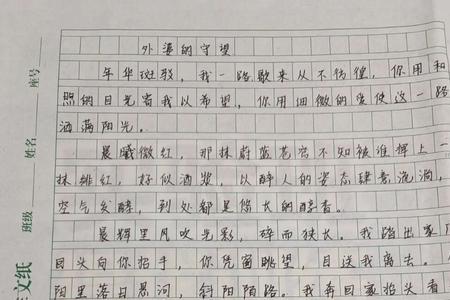 外婆的守望
年华斑驳，我一路歌来从不彷徨，你用和
照的目光寄我以希望，你用细微的爱使这一路
洒满阳光。
晨曦微红，那抹蔚蓝苍穹不知被谁挥上一
抹绯红，好似酒浆，以醉人的姿态肆意流淌，
空气发酵，到处都是悠长的醇香。
晨辉里风吹光影，碎而狭长。我踏出家
回头向你招手，你凭窗眺望，目送我离去。
阳里落日悬河，斜阳陌路。我奔回家抬头看
座号
姓名
班级
文纸